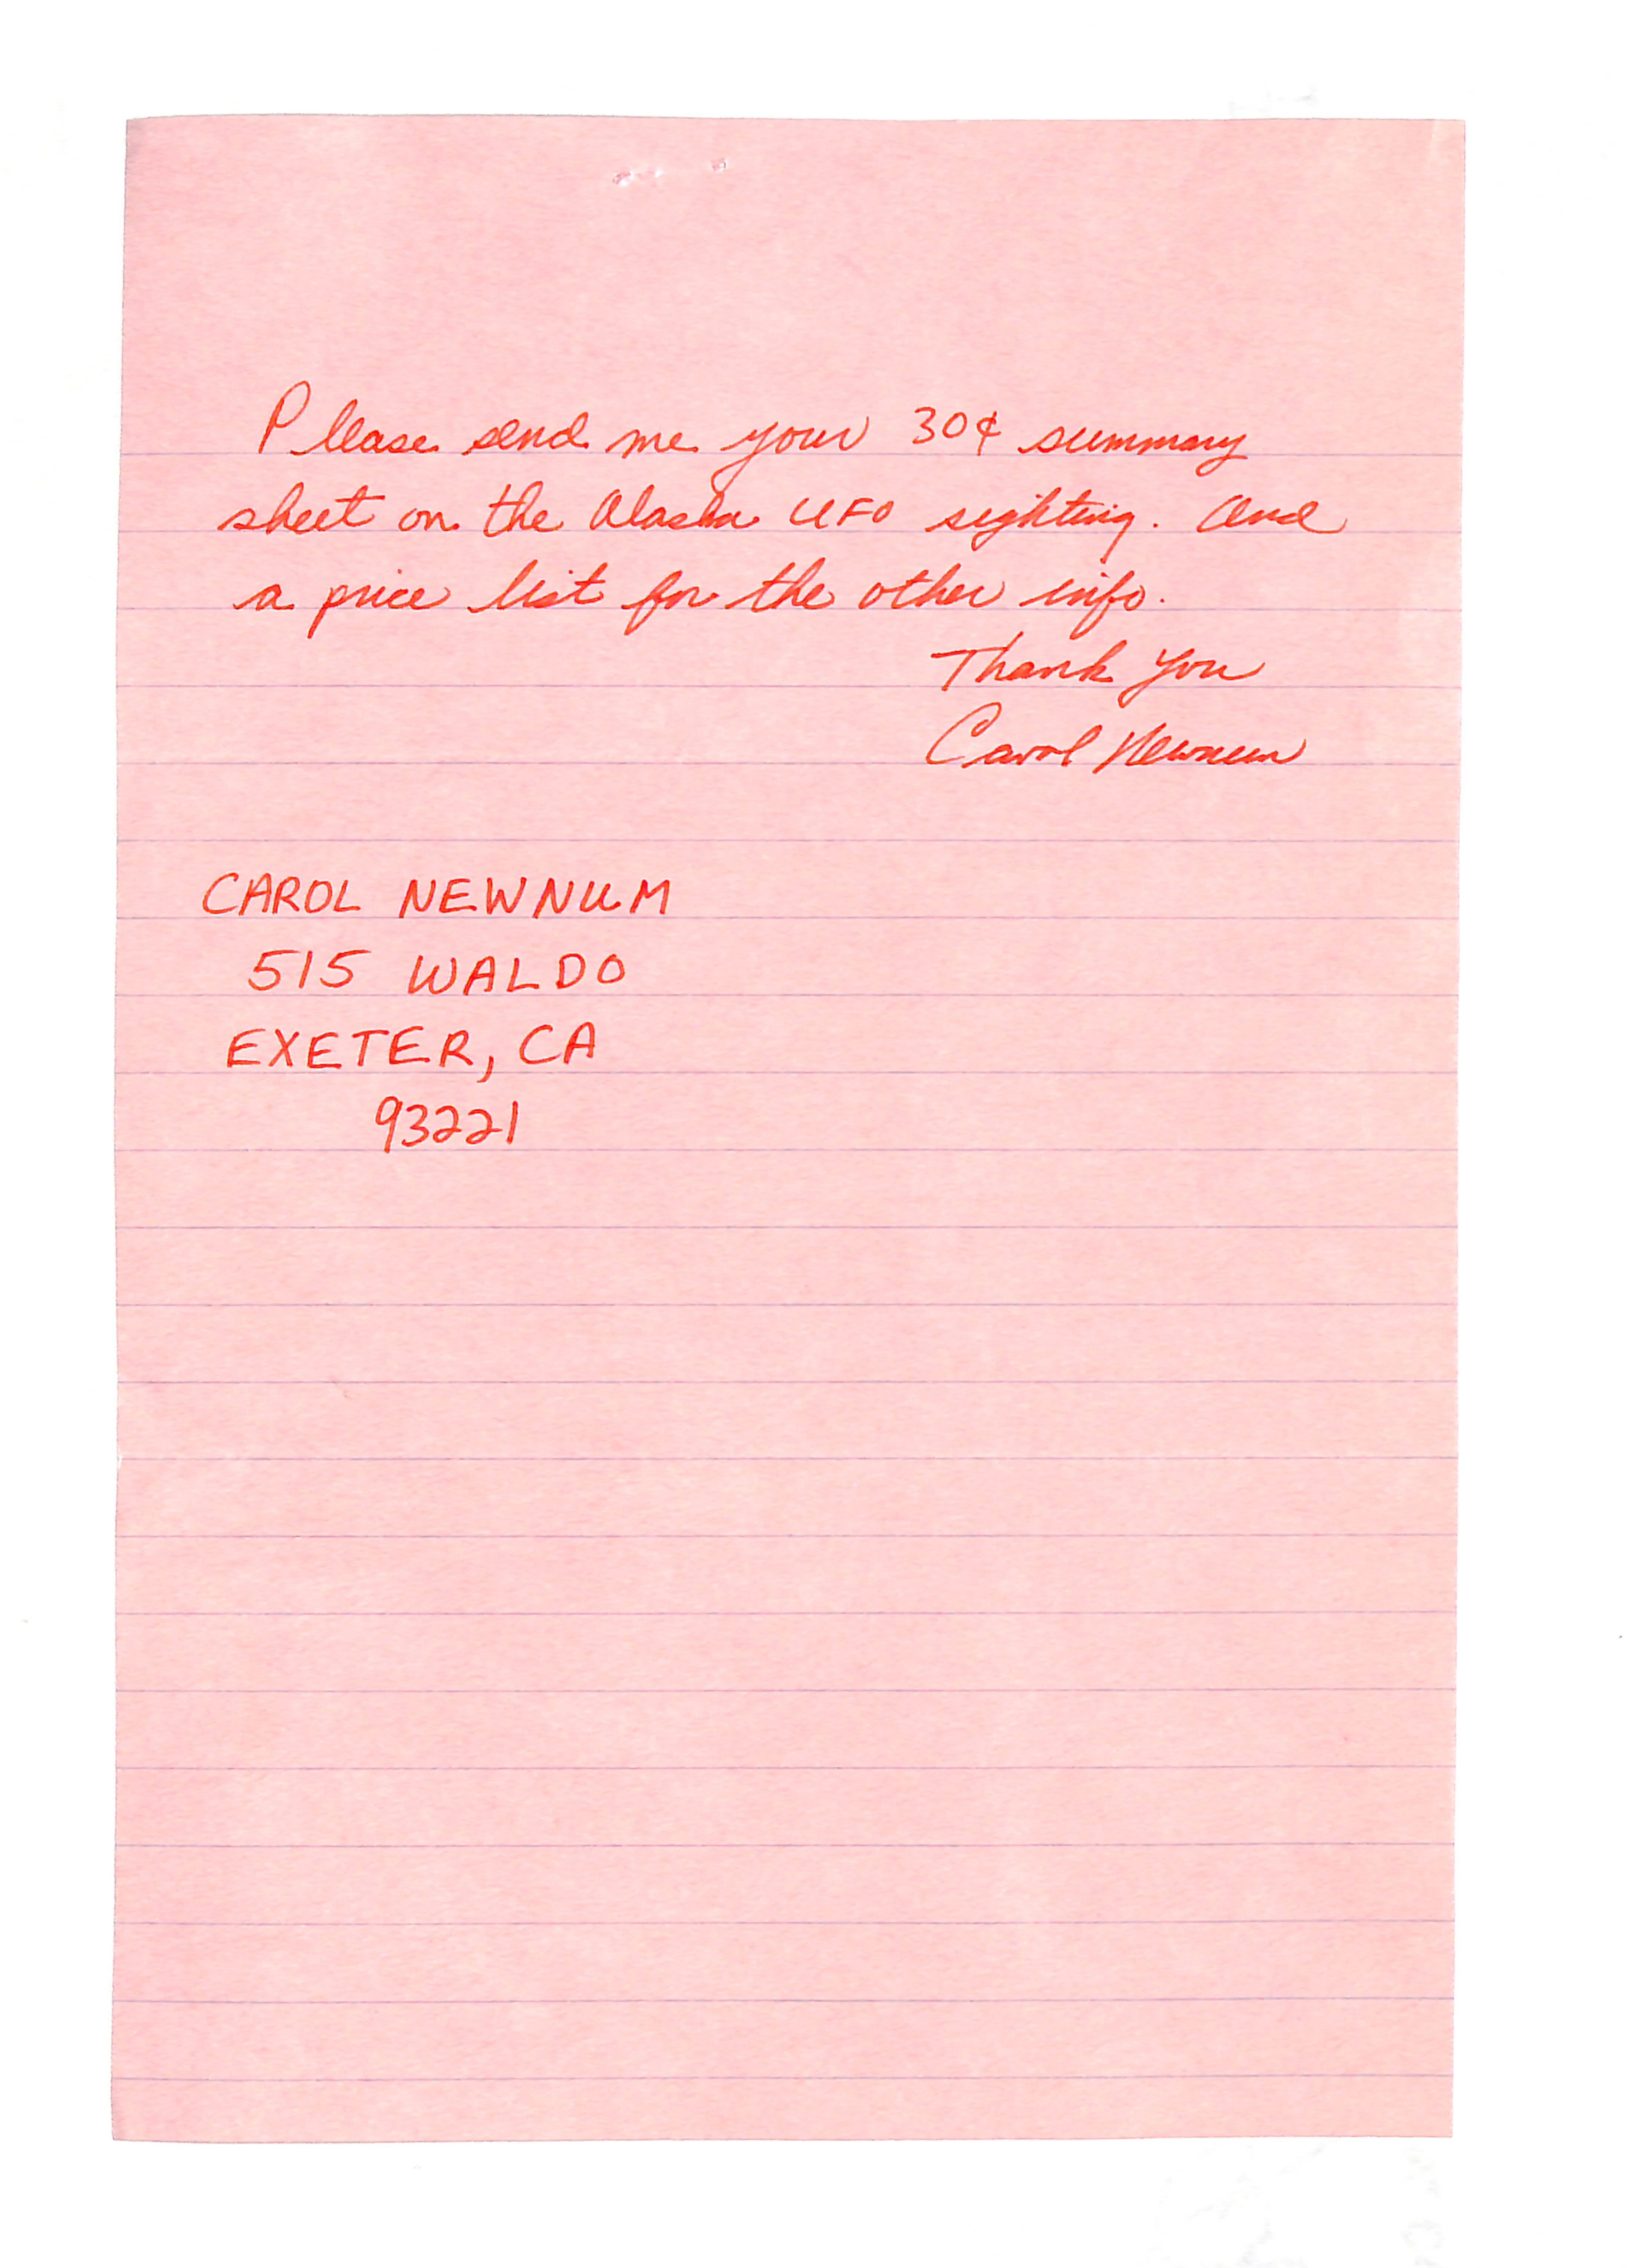 Please send me your 30¢ summary
sheet on the Alaska UFO sighting. And
a price list for the other info.
Thank You
Carol Newnum
CAROL NEWNUM
515 WALDO
EXETER, CA
93221